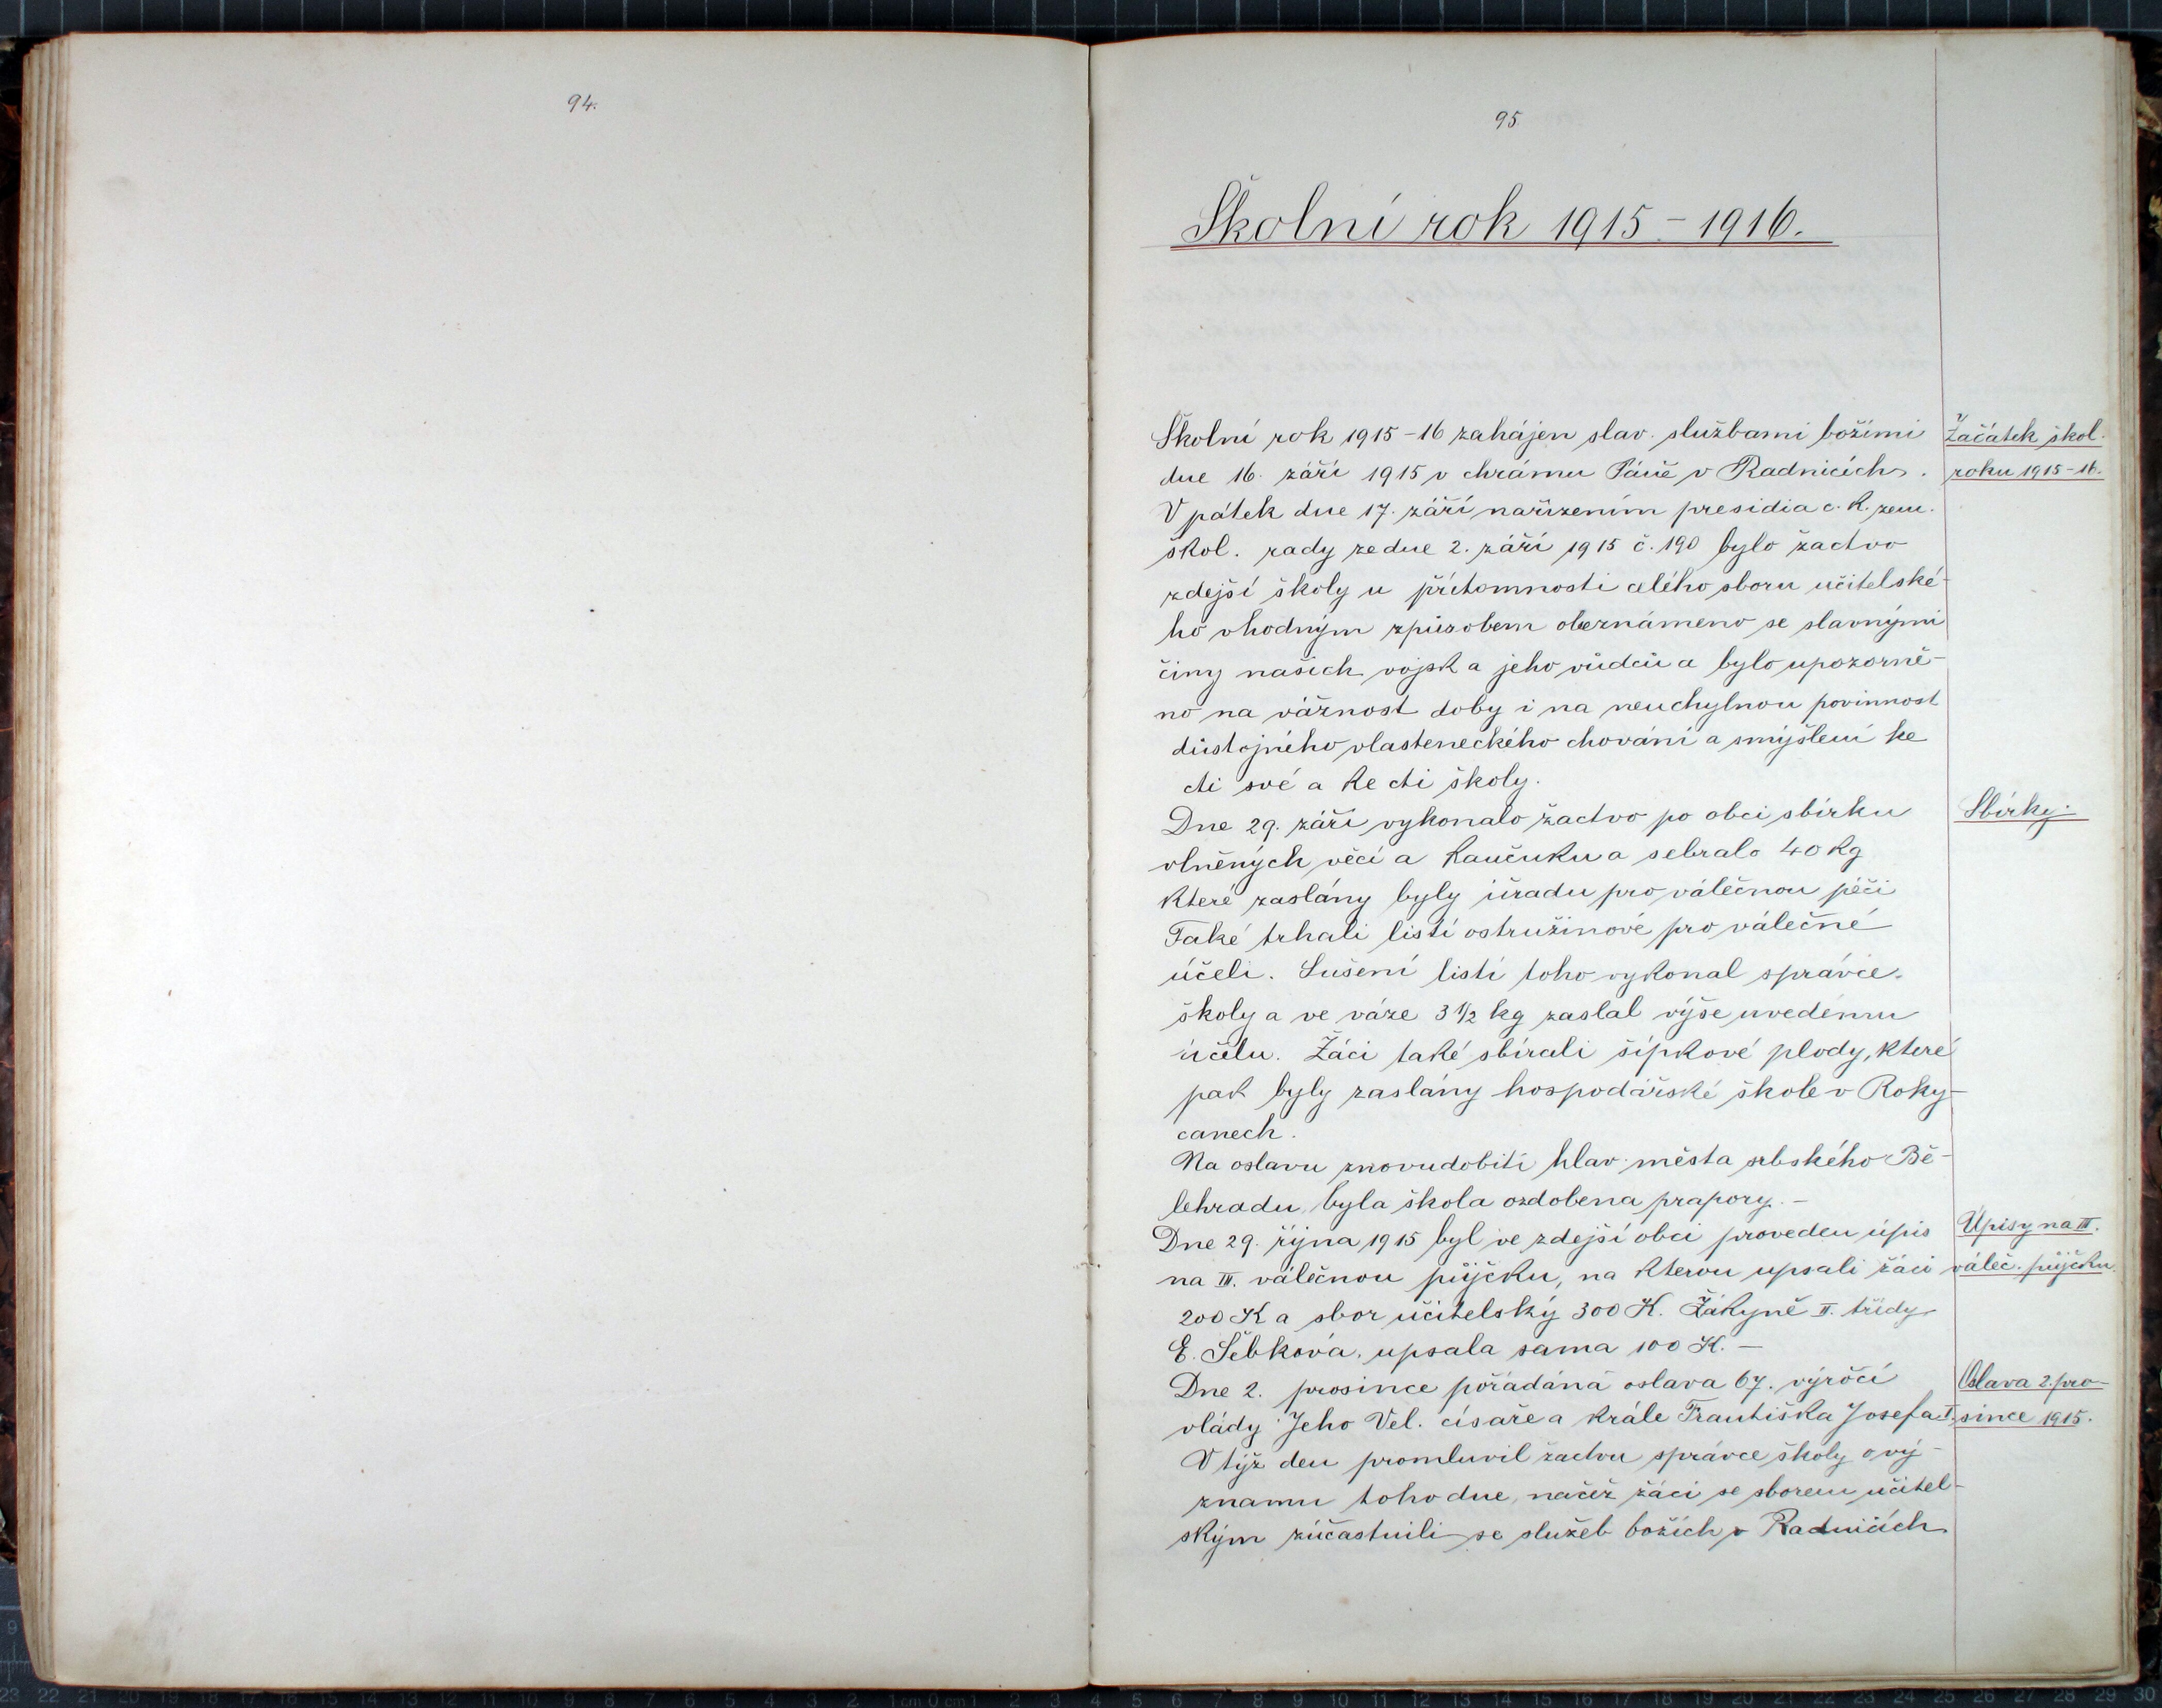 94.
95
Školní rok 1915 – 1916.
Školní rok 1915 – 16 zahájen slav. službami božími
Začátek škol.
dne 16. září 1915 v chrámu Páně v Radnicích.
roku 1915-16.
V pátek dne 17. září nařízením presidia c. k. zem.
škol. rady ze dne 2. září 1915 č. 190 bylo žactvo
zdejší školy u přítomnosti celého sboru učitelské-
ho vhodným způsobem obeznámeno se slavnými
činy našich vojsk a jeho vůdců a bylo upozorně-
no na vážnost doby i na neuchylnou povinnost
důstojného vlasteneckého chování a smýšlení ke
cti své a ke cti školy.
Dne 29. září vykonalo žactvo po obci sbírku
Sbírky.
vlněných věcí a kaučuku a sebralo 40 kg
které zaslány byly úřadu pro válečnou péči
Také trhali listí ostružinové pro válečné
účeli. Sušení listí toho vykonal správce
školy a ve váze 3 1/2 kg zaslal výše uvedenému
účelu. Žáci také sbírali šípkové plody, které
pak byly zaslány hospodářské škole v Roky-
canech.
Na oslavu znovudobití hlav. města srbského Bě-
lehradu, byla škola ozdobena prapory. –
Dne 29. října 1915 byl ve zdejší obci proveden úpis
Úpisy na III.
na III. válečnou půjčku, na kterou upsali žáci
váleč. půjčku.
200 K a sbor učitelský 300 K. Žákyně II. třídy
E. Šebková, upsala sama 100 K. –
Dne 2. prosince pořádána oslava 67. výročí
Oslava 2. pro-
vlády Jeho Vel. císaře a krále Františka Josefa I.
since 1915.
V týž den promluvil žactvu správce školy o vý-
znamu toho dne, načež žáci se sborem učitel-
ským zúčastnili se služeb božích v Radnicích